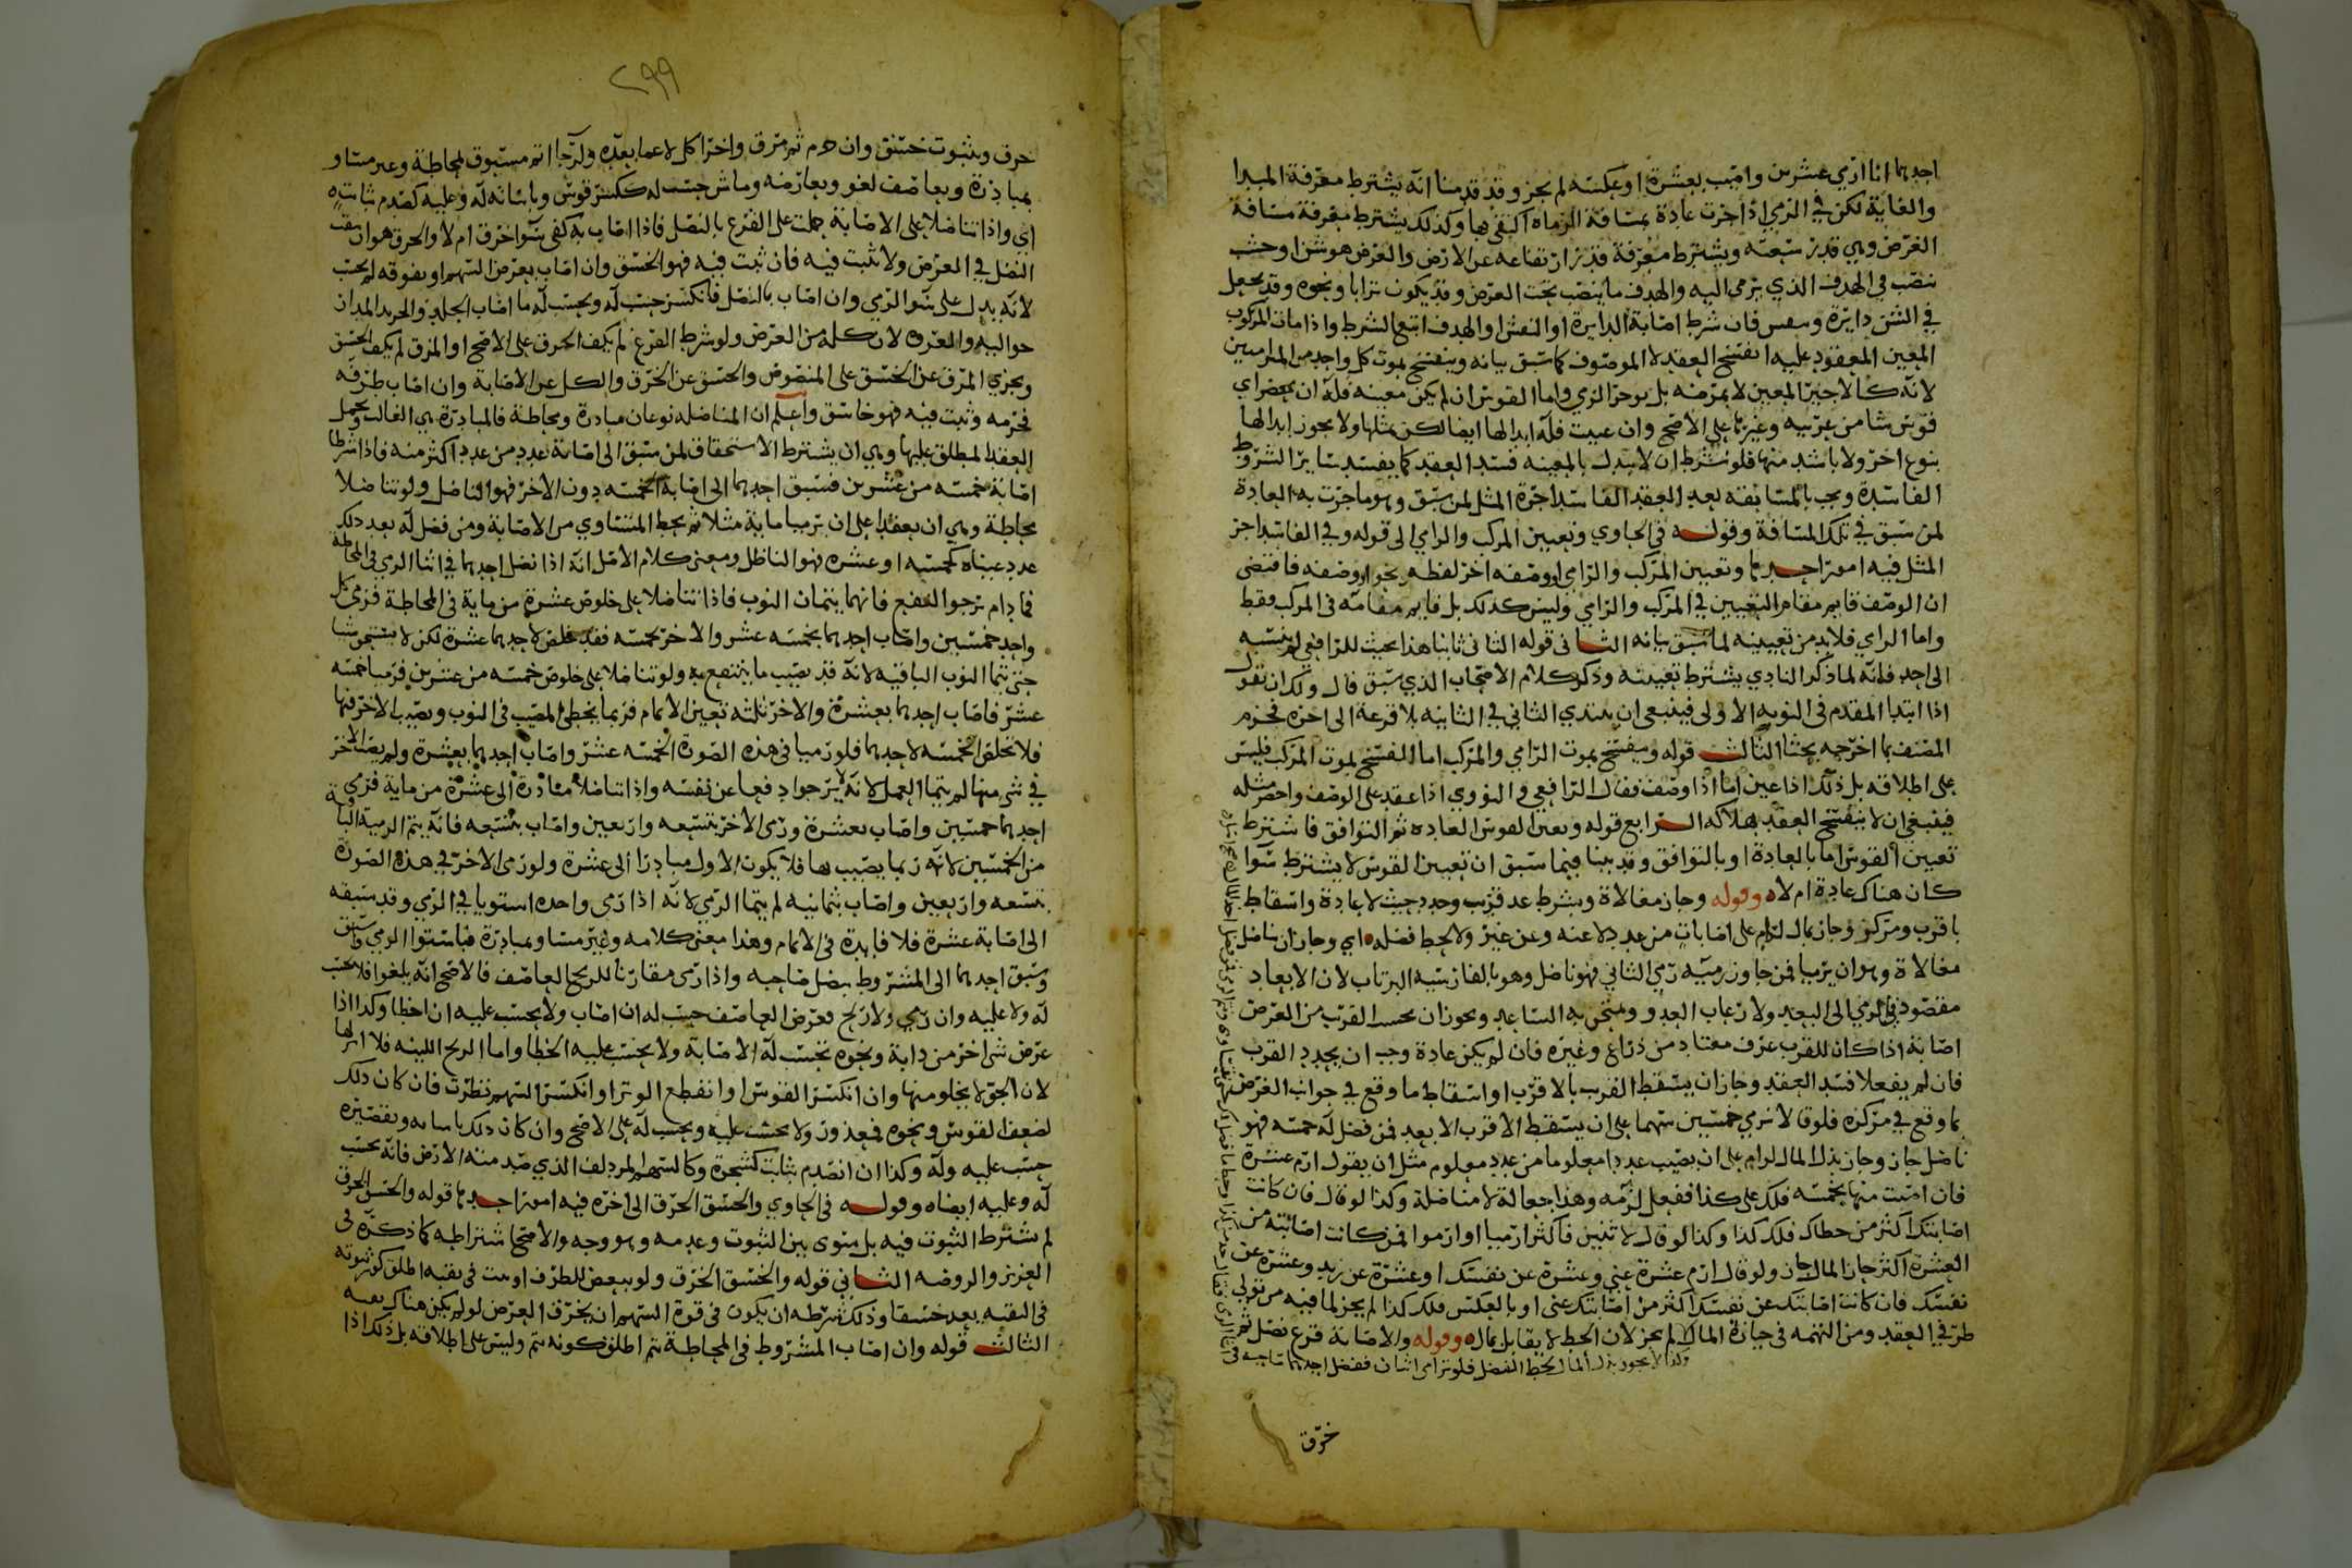 احدهما انا ارمي عشرين واصيب بعشرة او عكسه لم يجز وقد قدمنا انه يشترط معرفة المبدا
والغاية لكن في الرمي اذا جرت عادة بمسافة الرماة اكتفي بها وكذلك يشترط معرفة مسافة
الغرض وهي قدر سعته ويشترط معرفة قدر ارتفاعه عن الارض والغرض هو شن او خشب
ينصب في الهدف الذي يرمى اليه والهدف ما ينصب تحت الغرض وقد يكون ترابا ونحوه وقد يجعل
في الشن دايرة ونقش فان شرط اصابة الدايرة او النقش او الهدف اتبع الشرط واذا مات المركوب
المعين المعقود عليه انفسخ العقد لا الموصوف كما سبق بيانه وينفسخ بموت كل واحد من المتراميين
لانه كالاجير المعين لا بمرضه بل يوخر الرمي واما القوس ان لم يكن معينه فله ان يحضر اي
قوس شا من عربيه وغيرها على الاصح وان عينت فله ابدالها ايضا لكن بمثلها ولا يجوز ابدالها
بنوع اخر ولا باشد منها فلو شرط ان لا يبدل بالمعينه فسد العقد كما يفسد بساير الشروط
الفاسدة ويجب بالمسابقه بعد العقد الفاسد اجرة المثل لمن سبق وهو ما جرت به العادة
لمن سبق في تلك المسافة وقوله في الحاوي وتعيين المركب والرامي الى قوله وفي الفاسد اجر
المثل فيه امور احدها وتعيين المركب والرامي او وصفه اخر لفظه نحو او وصفه فاقتضى
ان الوصف قايم مقام التعيين في المركب والرامي وليس كذلك بل قايم مقامه في المركب فقط
واما الرامي فلابد من تعيينه لما سبق بيانه الثاني قوله الثاني ثانيا هذا بحث للرافعي لم ينسبه
الى احد فانه لما ذكر ان البادي يشترط تعيينه وذكر كلام الاصحاب الذي سبق قال ولك ان تقول
اذا ابتدا المقدم في النوبه الاولى فينبغي ان يبتدي الثاني في الثانيه بلا قرعة الى اخره فجزم
المصنف بما اخرجه بحثا الثالث قوله وينفسخ بموت الرامي والمركب اما الفسخ بموت المركب فليس
على اطلاقه بل ذلك اذا عين اما اذا وصف فقال الرافعي والنووي اذا عقد على الوصف واحضر مثله
فينبغي ان لا ينفسخ العقد بهلاكه الرابع قوله وتعين القوس العاده ثم التوافق فاشترط
تعيين القوس اما بالعادة او بالتوافق وقد بينا فيما سبق ان تعيين القوس لا يشترط سوا
كان هناك عادة ام لا وقوله وجاز مغالاة وبشرط عد قرب وحدد حيث لا عادة واسقاط
باقرب ومركز وجاز مال لرام على اصابات من عدد لا عنه وعن غير ولا لحط فضله اي وجاز ان يناضل
مغالاة وهو ان يرميا فمن جاوز رميه رمي الثاني فهو ناضل وهو بالفارسيه البرتاب لان الابعاد
مقصود في الرمي الى البعيد ولارعاب العدو ويمتحن به الساعد ويجوز ان يحسب القرب من الغرض
اصابة اذا كان للقرب عرف معتاد من ذراع وغيره فان لم يكن عادة وجب ان يحدد القرب
فان لم يفعلا فسد العقد وجاز ان يسقط القرب بالاقرب او اسقاط ما وقع في جوانب الغرض
بما وقع في مركزه فلو قالا نرمي خمسين سهما على ان يسقط الاقرب الابعد فمن فضل له خمسه فهو
ناضل جاز وجاز بذل المال لرام على ان يصيب عددا معلوما من عدد معلوم مثل ان يقول ارم عشرة
فان اصبت منها بخمسه فلك علي كذا ففعل لزمه وهذا جعالة لا مناضلة وكذا لو قال فان كانت
اصابتك اكثر من خطاك فلك كذا وكذا لو قال لاثنين فاكثر ارميا او ارموا فمن كانت اصابته من
العشرة اكثر حاز المال جاز ولو قال ارم عشرة عني وعشرة عن نفسك او عشرة عن زيد وعشرة عن
نفسك فان كانت اصابتك عن نفسك اكثر من اصابتك عني او بالعكس فلك كذا لم يجز لما فيه من تولي
طرفي العقد ومن التهمه في حيازة المال لم يجز لان الحط لا يقابل بمال وقوله والاصابة قرع نصل ثم
وكذا لا يجوز بذل المال لحط الفضل فلو ترامى اثنان ففضل احدهما صاحبه في
خرق
٢٩٩
خرق وبثبوت خسق وان خرم ثم مزق واخرا كل لا عما بعده ولرجا اتم مسبوق لمحاطة وغير مساو
بمبادرة وبعاصف لغو وبعارضه وما ش حسب له ككسر قوس وباساته له وعليه كصدم ثابت
اي واذا تناضلا على الاصابة حملت على القرع بالنصل فاذا اصاب به كفى سوا خرق ام لا والخرق هو ان يثقب
النصل في الغرض ولا يثبت فيه فان ثبت فيه فهو الخسق وان اصاب بعرض السهم او بفوقه لم يحسب
لانه يدل على سوا الرمي وان اصاب بالنصل فانكسر حسب له ويحسب له ما اصاب الجلد والجريد المدار
حواليه والعروه لان كله من الغرض ولو شرط القرع لم يكف الخرق على الاصح او المزق لم يكف الخسق
ويجزي المزق عن الخسق على المنصوص والخسق عن الخرق والكل عن الاصابة وان اصاب طرفه
فخرمه وثبت فيه فهو خاسق واعلم ان المناضله نوعان مبادرة ومحاطة فالمبادرة هي الغالب ويحمل
العقد المطلق عليها وهي ان يشترط الاستحقاق لمن سبق الى اصابة عدد من عدد اكثر منه فاذا شرطا
اصابة خمسه من عشرين فسبق احدهما الى اصابة الخمسه دون الاخر فهو الناضل ولو تناضلا
محاطة وهي ان يعقدا على ان يرميا ماية مثلا ثم يحط المتساوي من الاصابة ومن فضل له بعد ذلك
عدد عيناه كخمسه او عشره فهو الناظل ومعنى كلام الاصل انه اذا نضل احدهما في اثنا الرمي في المحاطة
فما دام يرجو النفع فانهما يتمان النوب فاذا تناضلا على خلوص عشرة من ماية في المحاطة فرمى كل
واحد خمسين واصاب احدهما بخمسه عشر والاخر بخمسه فقد خلص لاحدهما عشرة لكن لا يستحق شيا
حتى يتما النوب الباقيه لانه قد يصيب ما ينتفع به ولو تناضلا على خلوص خمسه من عشرين فرميا خمسه
عشر فاصاب احدهما بعشرة والاخر ثلثه تعين الاتمام فربما يخطئ المصيب في النوب ويصيب الاخر فيها
فلا تخلص الخمسه لاحدهما فلو رميا في هذه الصورة الخمسه عشر واصاب احدهما بعشرة ولم يصب الاخر
في شي منها لم يتما العمل لانه لا يرجوا دفعا عن نفسه واذا تناضلا مبادرة الى عشرة من ماية فرمى
احدهما خمسين واصاب بعشرة ورمى الاخر بتسعه واربعين واصاب بتسعه فانه يتم الرمية الباقية
من الخمسين لانه ربما يصيب بها فلا يكون الاول مبادرا الى عشرة ولو رمى الاخر في هذه الصورة
بتسعه واربعين واصاب بثمانيه لم يتما الرمي لانه اذا رمى واحده استويا في الرمي وقد سبقه
الى اصابة عشرة فلا فايدة في الاتمام وهذا معنى كلامه وغير مساو بمبادرة
وسبق احدهما الى المشروط بنضل صاحبه واذا رمى مقارنا للريح العاصف فالاصح انه يلغوا فلا يحسب
له ولا عليه وان رمي ولا ريح فعرض العاصف حسب له ان اصاب ولا يحسب عليه ان اخطا وكذا اذا
عرض شي اخر من دابة ونحوه تحسب له الاصابة ولا يحسب عليه الخطا واما الريح اللينه فلا اثر لها
لان الجو لا يخلو منها وان انكسر القوس او انقطع الوتر او انكسر السهم نظرت فان كان ذلك
لضعف القوس ونحوه فمعذور ولا يحسب عليه ويحسب له على الاصح وان كان ذلك باساته وتقصيره
حسب عليه وله وكذا ان انصدم بثابت كشجرة وكالسهم المزدلف الذي صدمته الارض فانه يحسب
له وعليه ايضا وقوله في الحاوي والخسق الخرق الى اخره فيه امور احدها قوله والخسق الخرق
لم يشترط الثبوت فيه بل سوى بين الثبوت وعدمه وهو وجه والاصح اشتراطه كما ذكره في
العزيز والروضه الثاني قوله والخسق الخرق ولو ببعض للطرف
الثالث قوله وان اصاب المشروط في المحاطة تم اطلق كونه يتم وليس على اطلاقه بل ذلك اذا